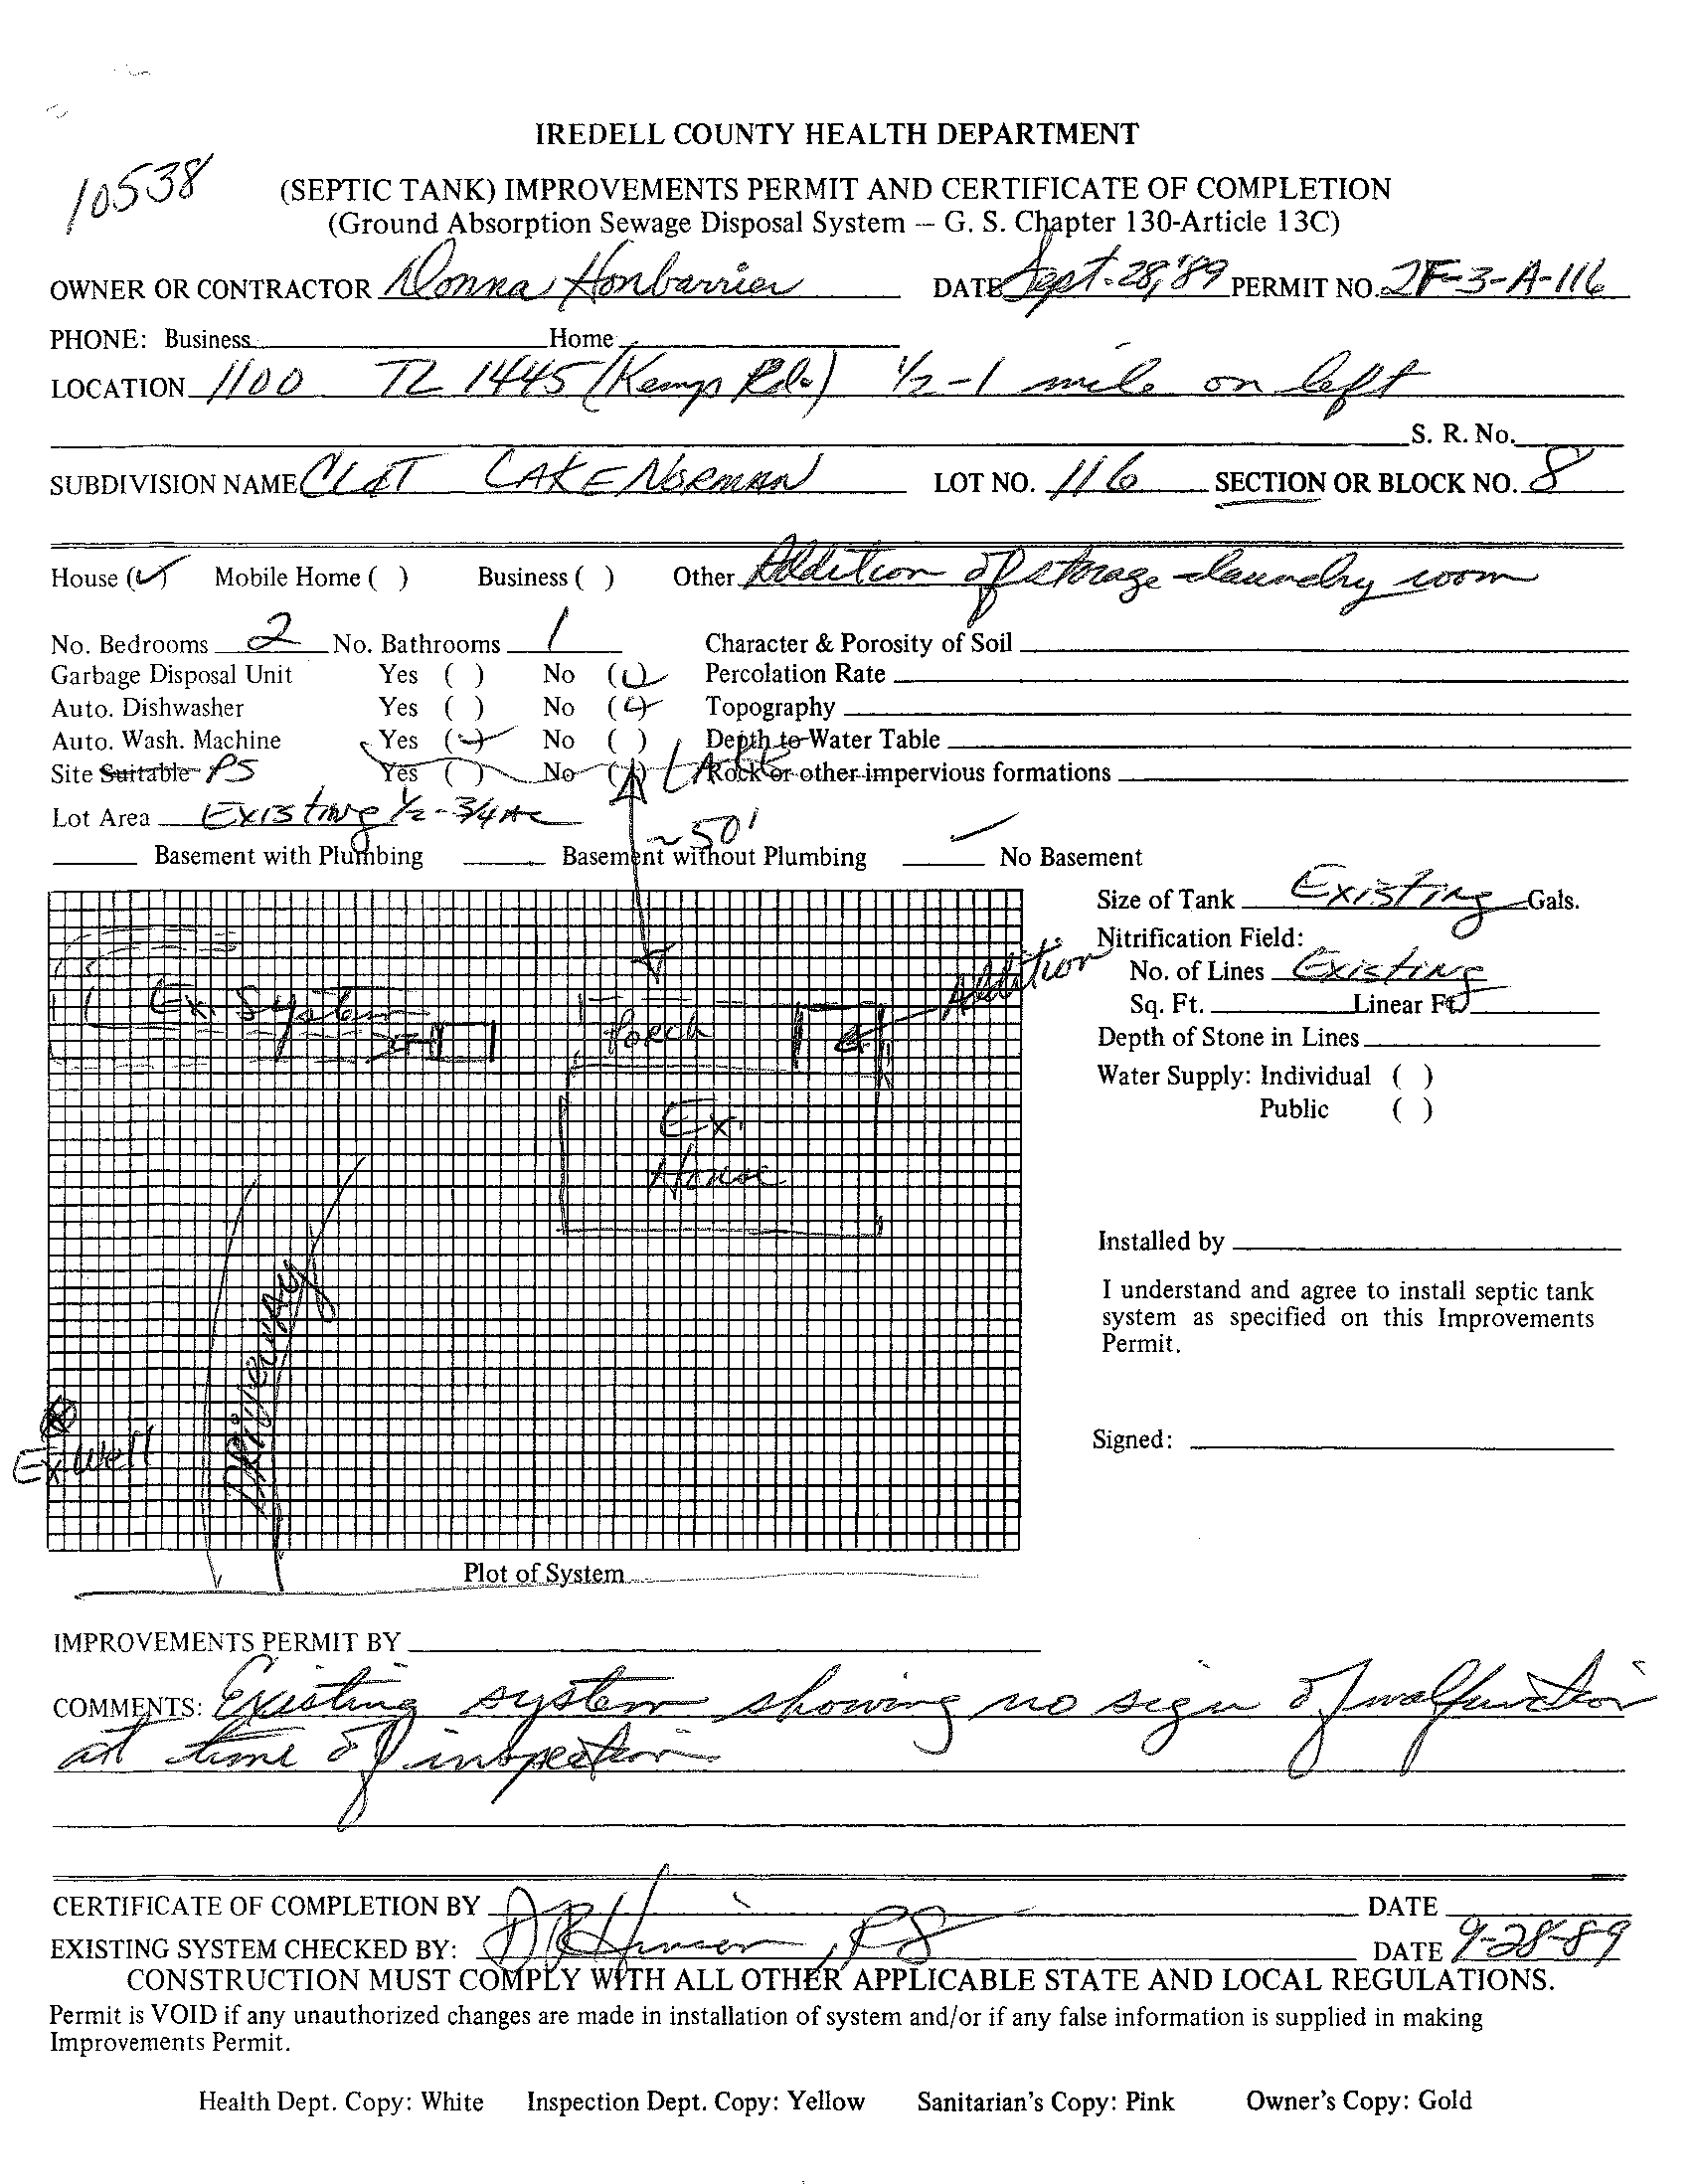 IREDELL COUNTY HEALTH DEPARTMENT
10538
(SEPTIC TANK) IMPROVEMENTS PERMIT AND CERTIFICATE OF COMPLETION
(Ground Absorption Sewage Disposal System — G. S. Chapter 130-Article 13C)
OWNER OR CONTRACTOR Donna Honbarrier DATE Sept. 28, '89 PERMIT NO. 2F-3-A-116
PHONE: Business Home
LOCATION 1100 TL 1445 (Kemp Rd.) 1/2-1 mile on left
S. R. No.
SUBDIVISION NAME LAKE NORMAN LOT NO. 116 SECTION OR BLOCK NO. 8
House (✓) Mobile Home ( ) Business ( ) Other Addition of storage-laundry room
No. Bedrooms 2 No. Bathrooms 1 Character & Porosity of Soil
Garbage Disposal Unit Yes ( ) No (✓) Percolation Rate
Auto. Dishwasher Yes ( ) No (✓) Topography
Auto. Wash. Machine Yes (✓) No ( ) Depth to Water Table
Site Suitable PS Yes ( ) No ( ) Rock or other impervious formations
Lot Area Existing 1/2-3/4 Ac
~50'
Basement with Plumbing Basement without Plumbing ✓ No Basement
Size of Tank Existing Gals.
Nitrification Field:
No. of Lines Existing
Sq. Ft. Linear Ft.
Depth of Stone in Lines
Water Supply: Individual ( )
Public ( )
Addition
Ex. System
Porch
Ex.
House
Driveway
Ex. Well
Installed by
I understand and agree to install septic tank
system as specified on this Improvements
Permit.
Signed:
Plot of System
IMPROVEMENTS PERMIT BY
COMMENTS: Existing system showing no sign of malfunction
at time of inspection.
CERTIFICATE OF COMPLETION BY DATE
EXISTING SYSTEM CHECKED BY: , RS DATE 9-28-89
CONSTRUCTION MUST COMPLY WITH ALL OTHER APPLICABLE STATE AND LOCAL REGULATIONS.
Permit is VOID if any unauthorized changes are made in installation of system and/or if any false information is supplied in making
Improvements Permit.
Health Dept. Copy: White Inspection Dept. Copy: Yellow Sanitarian's Copy: Pink Owner's Copy: Gold